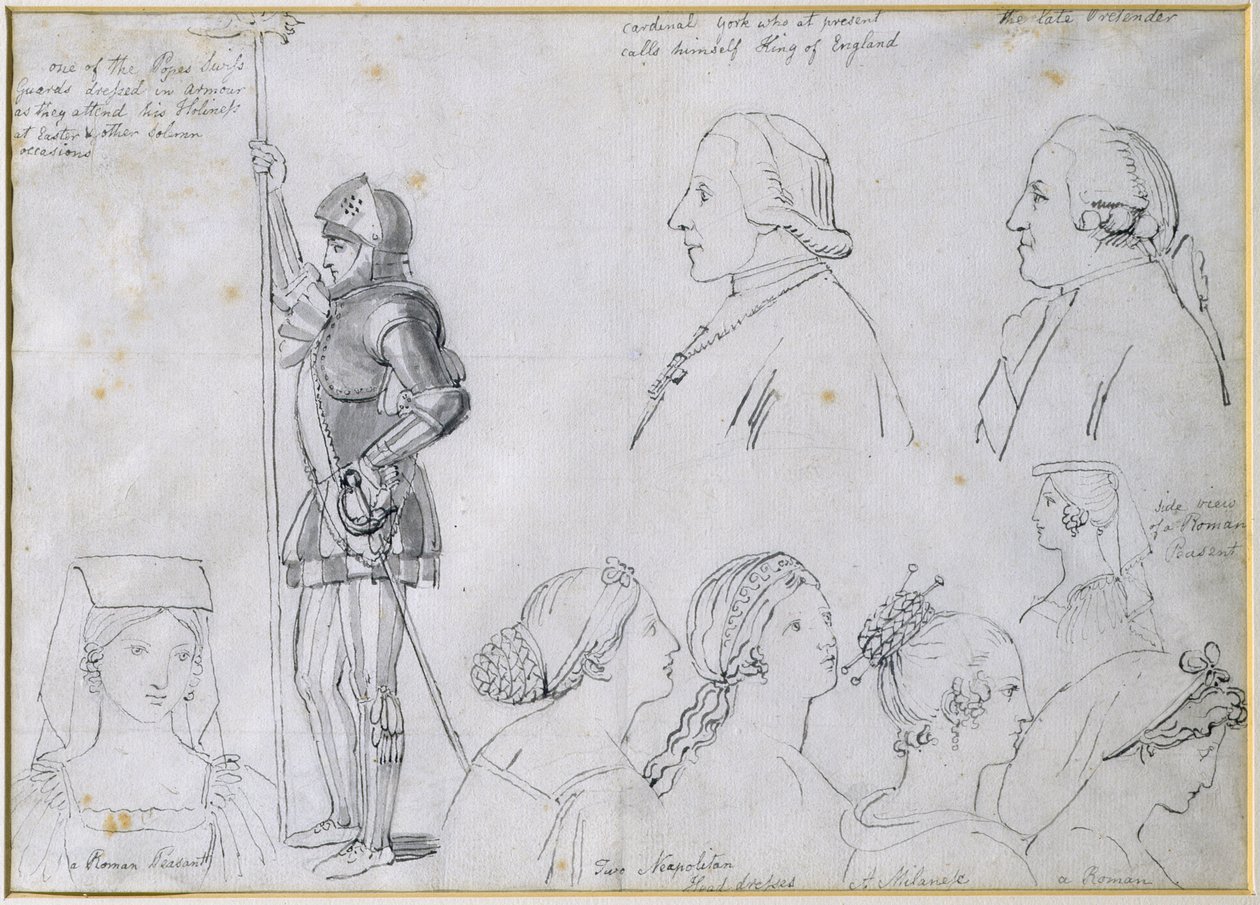 one of the Popes Swiſs
Guards dreſsed in armour
as they attend his Holineſs
at Easter & other solemn
occasions
cardinal York who at present
calls himself King of England
the late Pretender
side view
of a Roman
Peasent
a Roman Peasant
Two Neapolitan
Head dreſses
A Milaneſe
a Roman